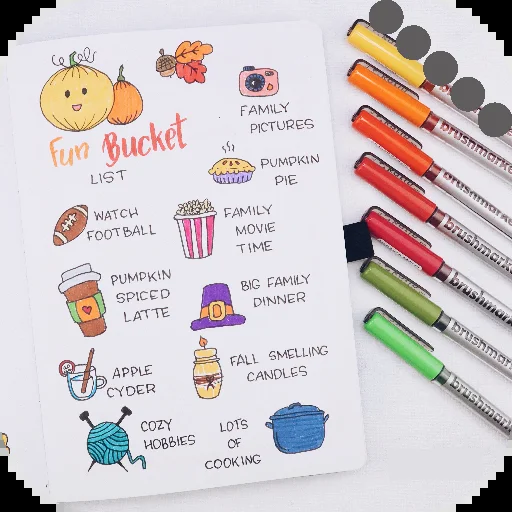 Fun Bucket
LIST
FAMILY
PICTURES
PUMPKIN
PIE
WATCH
FOOTBALL
FAMILY
MOVIE
TIME
PUMPKIN
SPICED
LATTE
BIG FAMILY
DINNER
APPLE
CYDER
FALL SMELLING
CANDLES
COZY
HOBBIES
LOTS
OF
COOKING
brushmarke
brushmarke
brushmark
brushmar
brushmar
brushmar